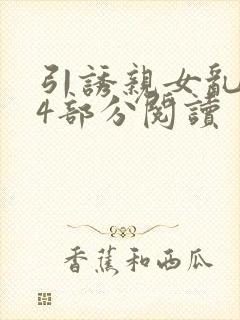 引誘親女亂
4部分閱讀
香蕉和西瓜